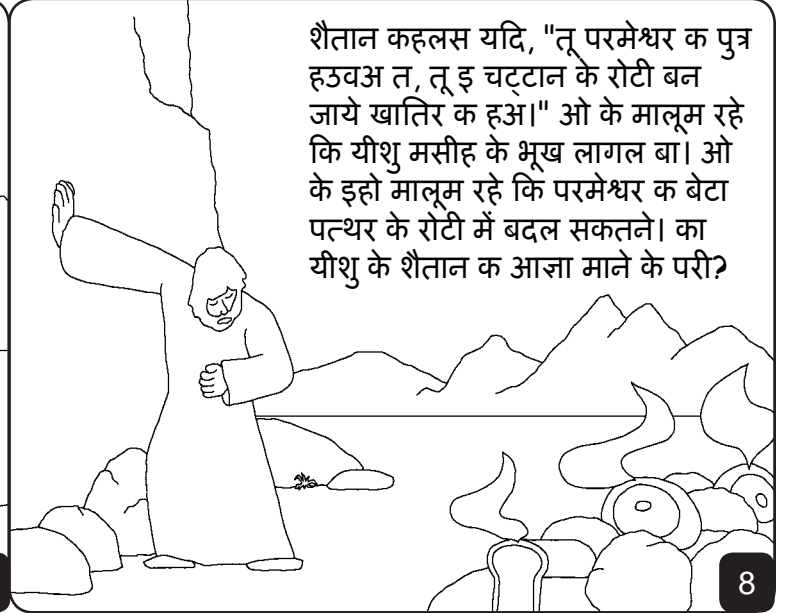 शैतान कहलस यदि, "तू परमेश्वर क पुत्र
हउवअ त, तू इ चट्टान के रोटी बन
जाये खातिर क हअ।" ओ के मालूम रहे
कि यीशु मसीह के भूख लागल बा। ओ
के इहो मालूम रहे कि परमेश्वर क बेटा
पत्थर के रोटी में बदल सकतने। का
यीशु के शैतान क आज्ञा माने के परी?
8